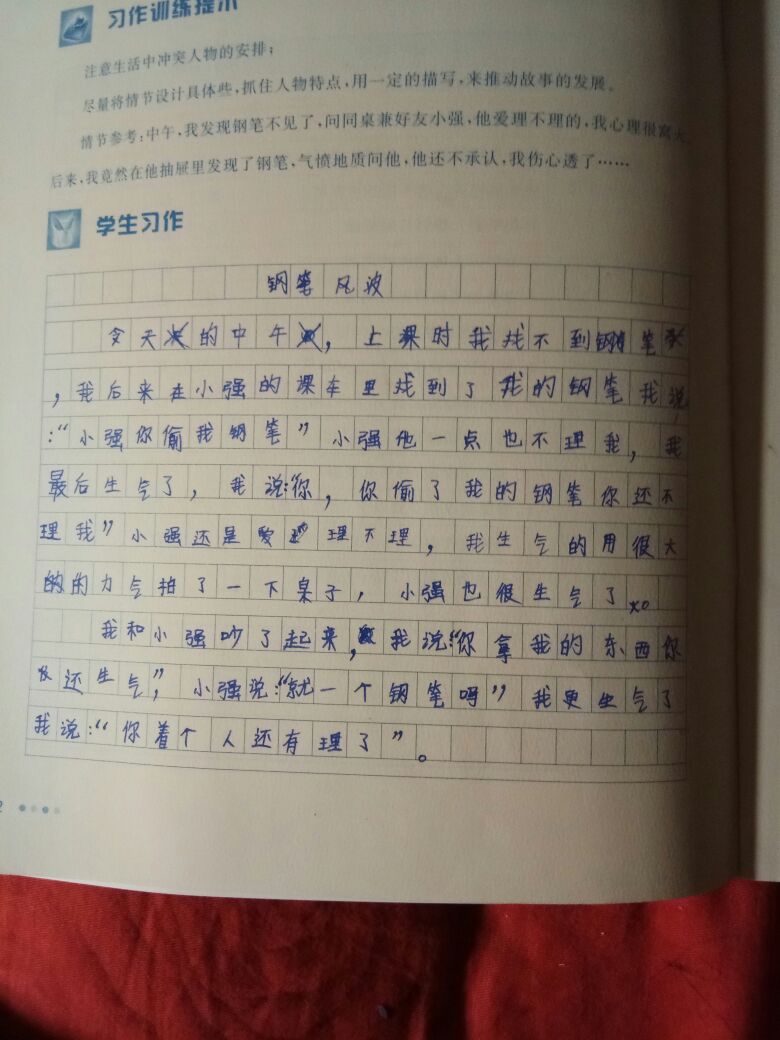 习作训练提示
注意生活中冲突人物的安排；
尽量将情节设计具体些，抓住人物特点，用一定的描写，来推动故事的发展。
情节参考：中午，我发现钢笔不见了，问同桌兼好友小强，他爱理不理的，我心理很窝火
后来，我竟然在他抽屉里发现了钢笔，气愤地质问他，他还不承认，我伤心透了……
学生习作
钢笔风波
今天的中午，上课时我找不到钢笔
，我后来在小强的课车里找到了我的钢笔我说
：“小强你偷我钢笔”小强他一点也不理我，我
最后生气了，我说：“你，你偷了我的钢笔你还不
理我”小强还是爱理不理，我生气的用很大
的的力气拍了一下桌子，小强也很生气了。
我和小强吵了起来，我说：“你拿我的东西你
还生气”，小强说：“就一个钢笔吗”我更生气了
我说：“你着个人还有理了”。
2